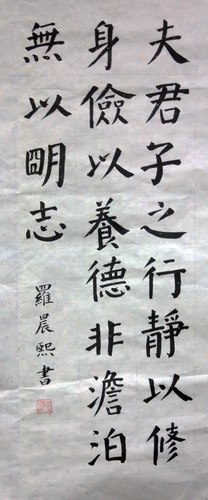 夫君子之行靜以修
身儉以養德非澹泊
無以明志
羅晨熙書